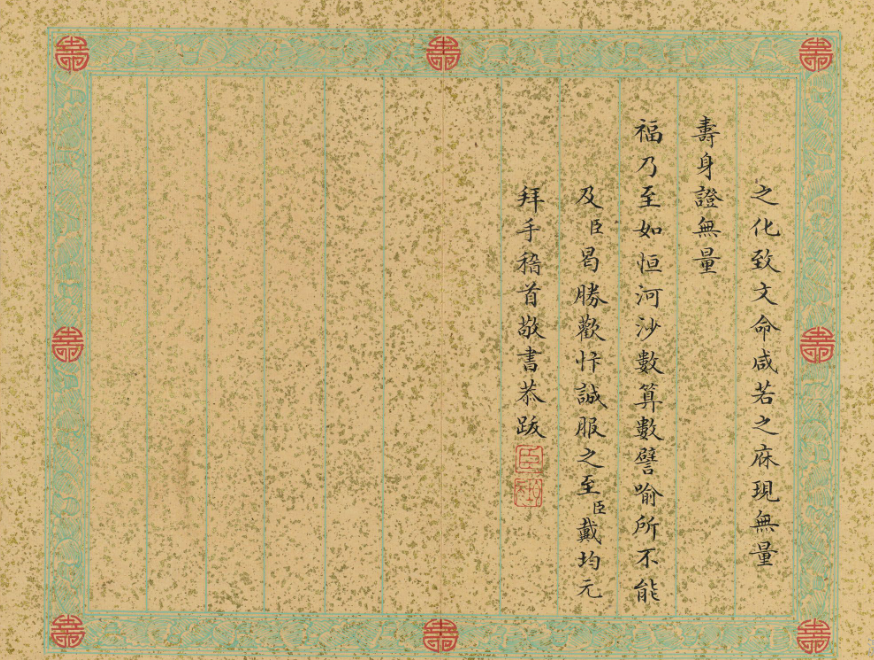 之化致文命咸若之庥現無量
壽身證無量
福乃至如恒河沙數算數譬喻所不能
及臣曷勝歡忭誠服之至臣戴均元
拜手稽首敬書恭跋